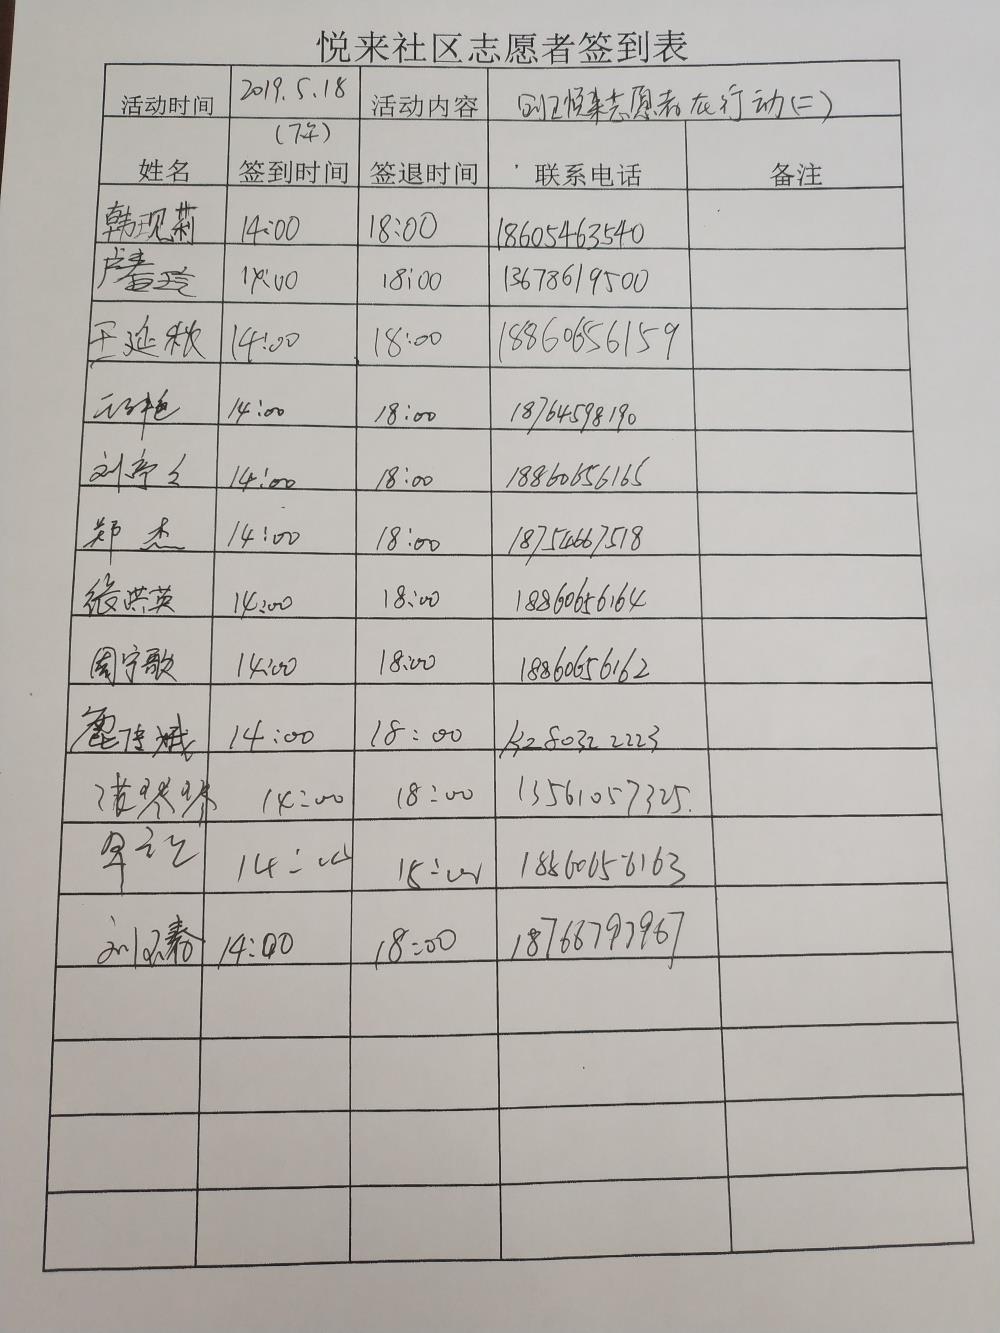 悦来社区志愿者签到表
活动时间 2019.5.18 活动内容 创卫悦来志愿者在行动(二)
(下午)
姓名 签到时间 签退时间 联系电话 备注
韩现莉 14:00 18:00 18605463540
卢春玲 14:00 18:00 13678619500
王延秋 14:00 18:00 18860656159
14:00 18:00 18764598190
刘亭 14:00 18:00 18860656165
郑杰 14:00 18:00 18754667518
张洪英 14:00 18:00 18860656164
周宁歌 14:00 18:00 18860656162
14:00 18:00 13280322223
14:00 18:00 13561057325.
14:00 18:00 18860656163
14:00 18:00 18768797967